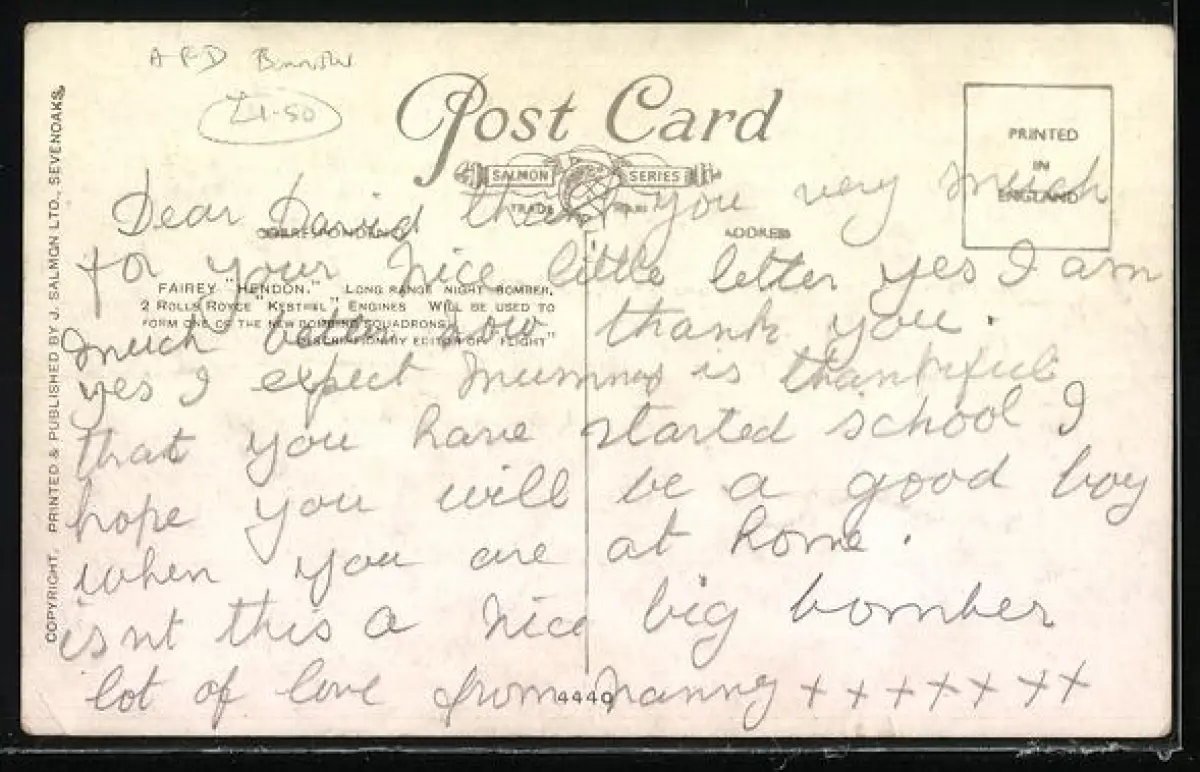 £1-50
Post Card
SALMON SERIES
TRADE MARK
PRINTED
IN
ENGLAND
CORRESPONDENCE
ADDRESS
FAIREY "HENDON." LONG RANGE NIGHT BOMBER.
2 ROLLS ROYCE "KESTREL" ENGINES WILL BE USED TO
FORM ONE OF THE NEW BOMBING SQUADRONS.
DESCRIPTION BY EDITOR OF "FLIGHT"
Dear David thank you very much
for your nice little letter yes I am
much better now thank you.
yes I expect Mummy is thankful
that you have started school I
hope you will be a good boy
when you are at home.
isnt this a nice big bomber
lot of love from nanny + + + + + + +
4440
COPYRIGHT. PRINTED & PUBLISHED BY J. SALMON LTD., SEVENOAKS.